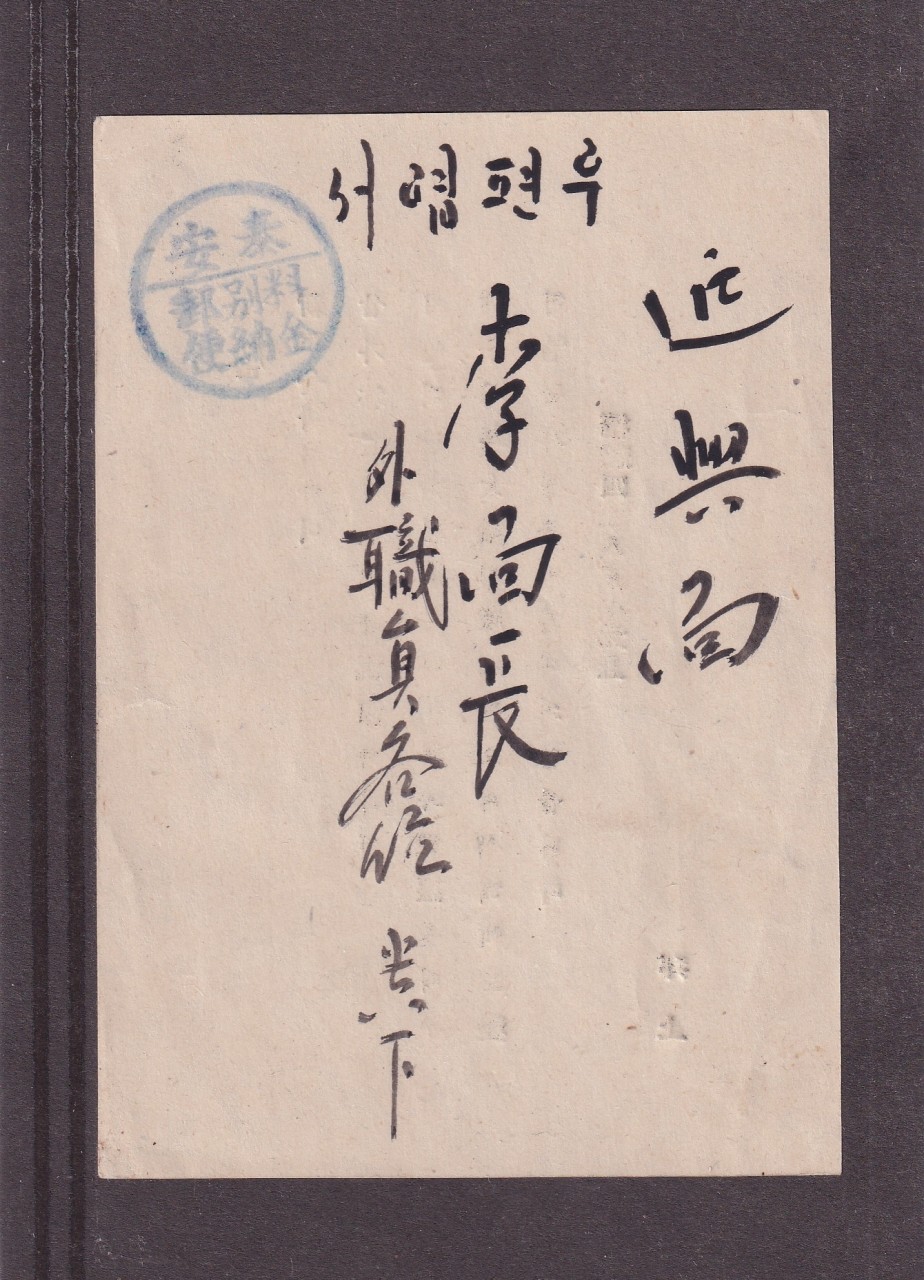 우편엽서
近興局
李局長
外職員各位 貴下
泰安
料金
別納
郵便